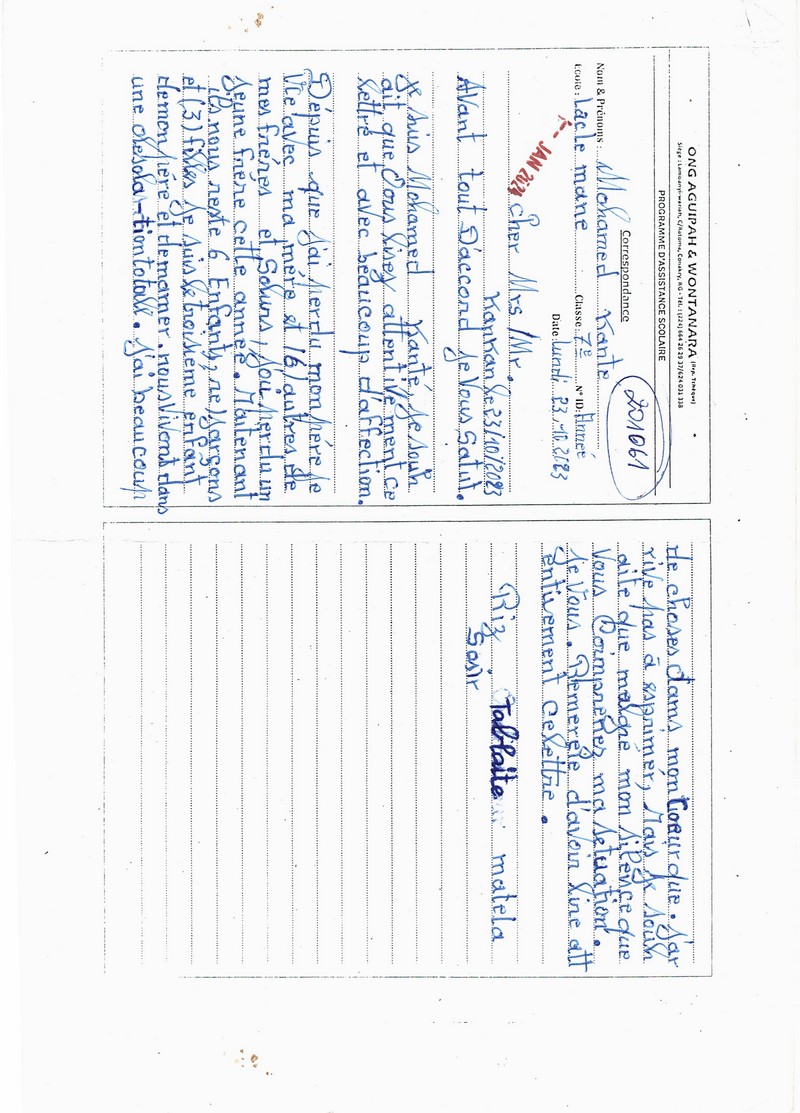 ONG AGUIPAH & WONTANARA (Rep. Trinque)
Siège : Lansanyi-wariah, C/Ratoma, Conakry, RG - Tél : (224) 664 26 29 37/624 033 333
PROGRAMME D'ASSISTANCE SCOLAIRE
Correspondance
201061
Nom & Prénoms : Mohamed Kante
Ecole : Lacle mane Classe : 7e N° ID: Année
Date lundi, 23.10.2023
JAN 2024
Cher Mrs / Mr.
Kankan le 23/10/2023
Avant tout D'accord je Vous Salut.
Je suis Mohamed Kanté, je souh
ait que Vous lisez attentivement ce
lettre et avec beaucoup d'affection.
Dépuis que j'ai perdu mon père je
Vie avec ma mère et (6) autres de
mes frères et Soeurs, j'ai perdu un
Jeune frère cette année. Maitenant
ils nous reste 6 Enfants, (3) garçons
et (3) filles je suis le troisieme enfant
demon père et demamer. nous Vivont dans
une desola-tion totale. j'ai beaucoup
de choses dams mon Coeur que. j'ar
rive pas à esprimer, Mais je souh
aite que malgré mon silence que
Vous Comprenez ma setuation.
je Vous. Remerçie d'avoir line att
entivement ce lettre.
Riz, Tablaite matela
Sosir